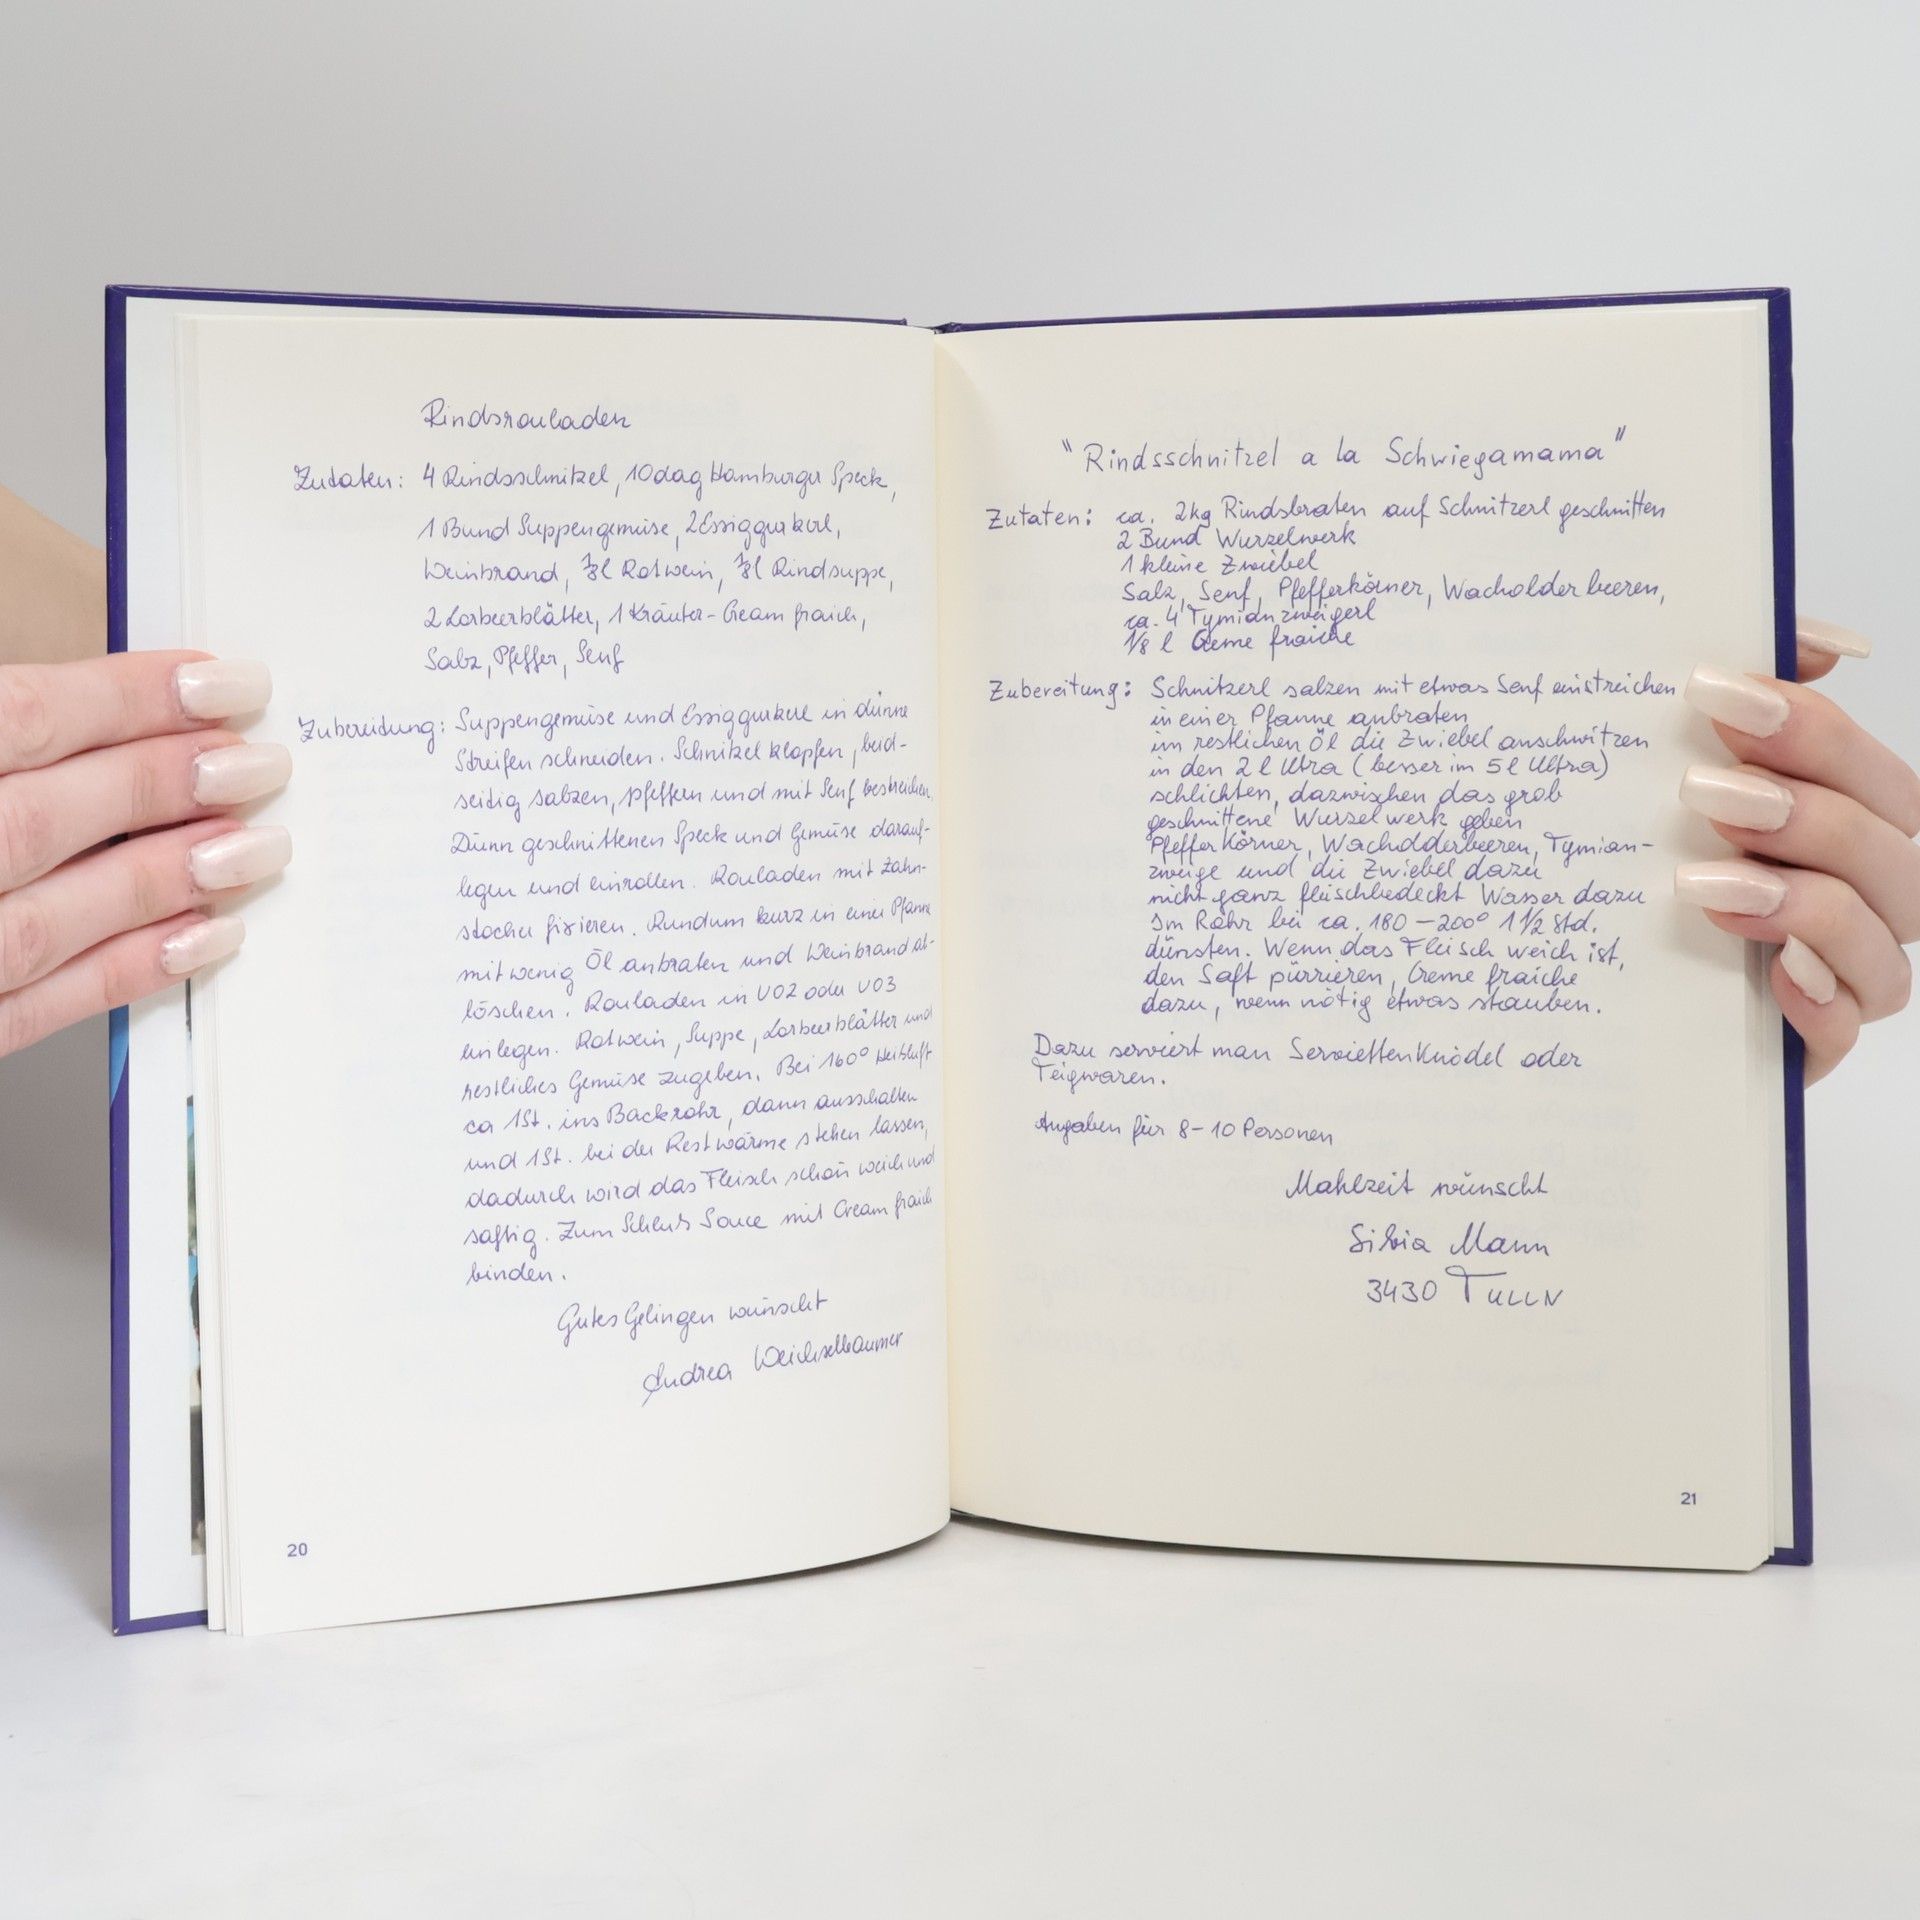 Rindsrouladen
Zutaten: 4 Rindsschnitzel, 10dag Hamburger Speck,
1 Bund Suppengemüse, 2 Essiggurkerl,
Weinbrand, ⅛l Rotwein, ⅛l Rindsuppe,
2 Lorbeerblätter, 1 Kräuter-Cream fraich,
Salz, Pfeffer, Senf
Zubereitung: Suppengemüse und Essiggurkerl in dünne
Streifen schneiden. Schnitzel klopfen, beid-
seitig salzen, pfeffern und mit Senf bestreichen.
Dünn geschnittenen Speck und Gemüse darauf-
legen und einrollen. Rouladen mit Zahn-
stocher fixieren. Rundum kurz in einer Pfanne
mit wenig Öl anbraten und Weinbrand ab-
löschen. Rouladen in V02 oder V03
einlegen. Rotwein, Suppe, Lorbeerblätter und
restliches Gemüse zugeben. Bei 160° Heißluft
ca 1St. ins Backrohr, dann ausschalten
und 1St. bei der Restwärme stehen lassen,
dadurch wird das Fleisch schön weich und
saftig. Zum Schluß Sauce mit Cream fraich
binden.
Gutes Gelingen wünscht
Andrea Weichselbaumer
20
"Rindsschnitzel a la Schwiegamama"
Zutaten: ca. 2kg Rindsbraten auf Schnitzerl geschnitten
2 Bund Wurzelwerk
1 kleine Zwiebel
Salz, Senf, Pfefferkörner, Wacholderbeeren,
ca. 4 Tymianzweigerl
1/8 l Creme fraiche
Zubereitung: Schnitzerl salzen mit etwas Senf einstreichen
in einer Pfanne anbraten
im restlichen Öl die Zwiebel anschwitzen
in den 2 l Ultra (besser im 5 l Ultra)
schlichten, dazwischen das grob
geschnittene Wurzelwerk geben
Pfefferkörner, Wacholderbeeren, Tymian-
zweige und die Zwiebel dazu
nicht ganz fleischbedeckt Wasser dazu
Im Rohr bei ca. 180 – 200° 1 1/2 Std.
dünsten. Wenn das Fleisch weich ist,
den Saft pürrieren, Creme fraiche
dazu, wenn nötig etwas stauben.
Dazu serviert man Serviettenknödel oder
Teigwaren.
Angaben für 8-10 Personen
Mahlzeit wünscht
Silvia Mann
3430 TULLN
21